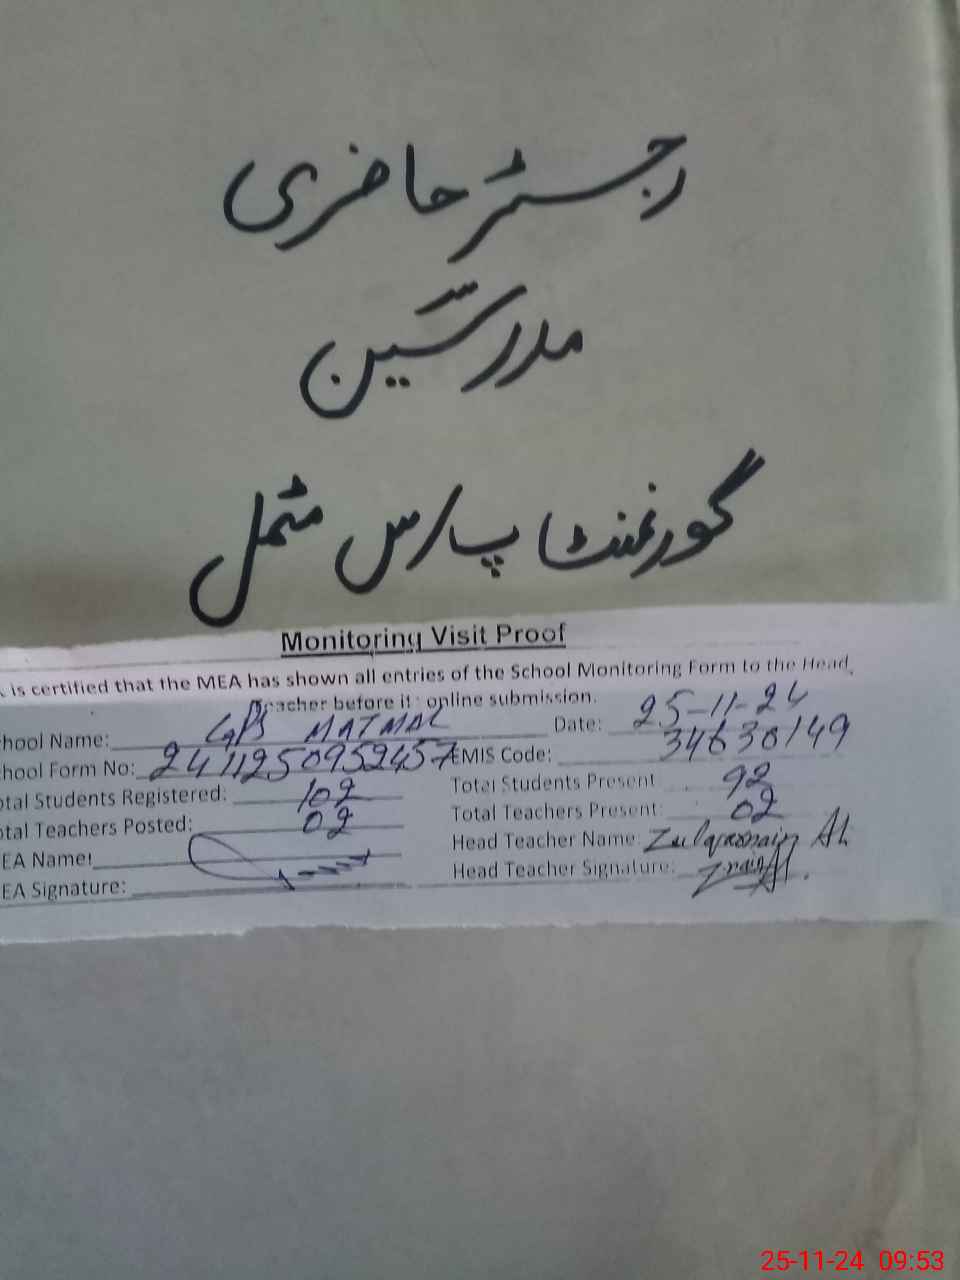 رجسٹر حاضری
مدرسین
گورنمنٹ پارس مٹمل
Monitoring Visit Proof
is certified that the MEA has shown all entries of the School Monitoring Form to the Head
Teacher before it online submission.
chool Name: GPS MATMAL Date: 25-11-24
chool Form No: 241125095245 EMIS Code: 34630149
otal Students Registered: 102 Total Students Present 92
otal Teachers Posted: 02 Total Teachers Present: 02
EA Name: Head Teacher Name: Zulqarnain Ali
EA Signature: Head Teacher Signature:
25-11-24 09:53